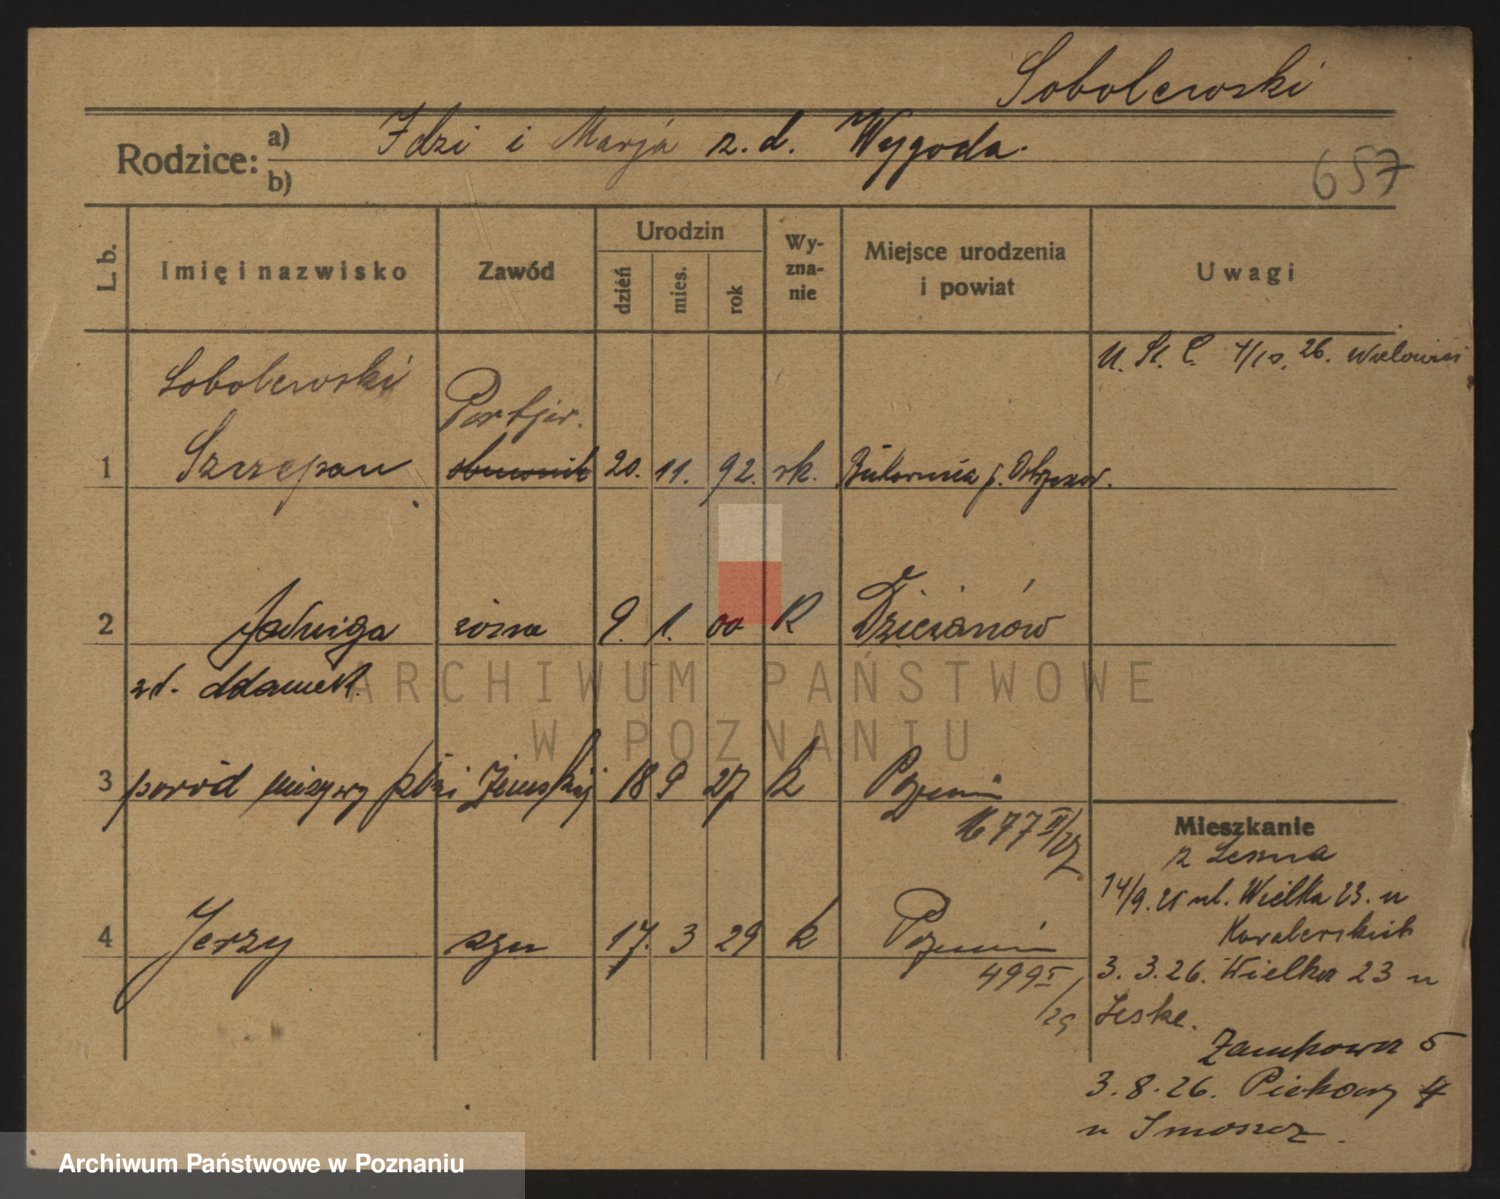 Sobolewski
Rodzice: a) Idzi i Marja z. d. Wygoda.
b)
657
L. b.
Imię i nazwisko
Zawód
Urodzin
dzień
mies.
rok
Wy-
zna-
nie
Miejsce urodzenia
i powiat
Uwagi
U. St. C. 26.
Sobolewski
Portjer.
1 Szczepan obuwnik 20. 11. 92. rk. Bukownica p. Ostrzeszów.
2 Jadwiga żona 9. 1. 00 R Dziećanów
zd. Adamek
ARCHIWUM PAŃSTWOWE
W POZNANIU
3 poród nieżywy płci żeńskiej 18 9 27 k Poznań
1677 II/27
Mieszkanie
z Leszna
14/9.25 ul. Wielka 23. u
4 Jerzy syn 17. 3 29 k Poznań
499 I/29
3. 3. 26. Wielka 23 u
Leske.
Zamkowa 5
3. 8. 26. Piekary 4
u
Archiwum Państwowe w Poznaniu